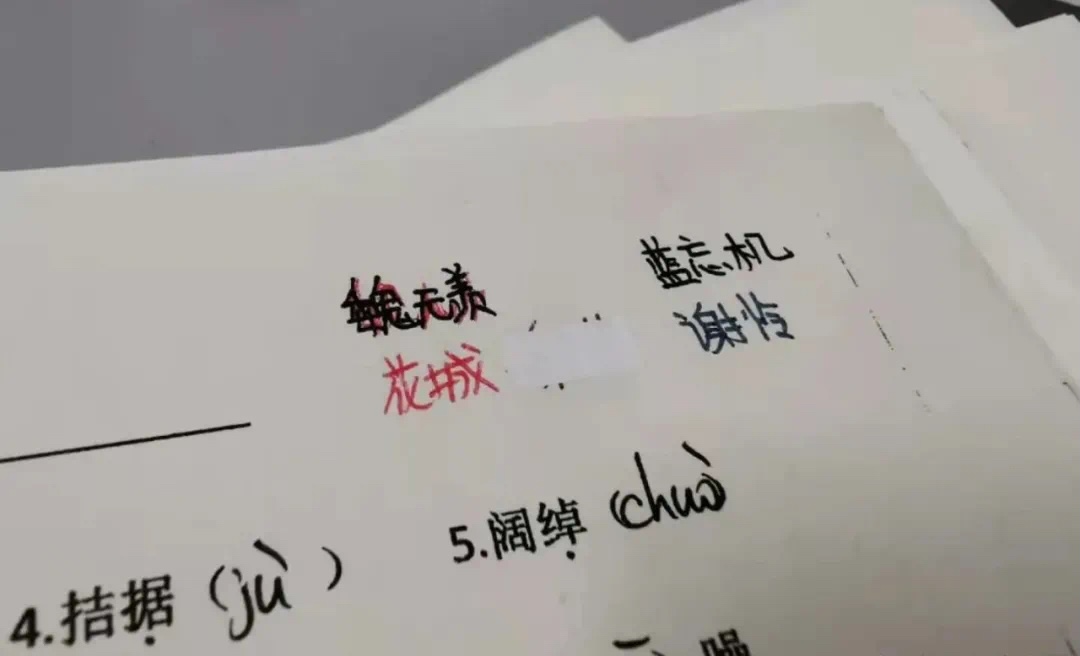 魏无羡 蓝忘机
花城 谢怜
4.拮据(jù) 5.阔绰(chuò